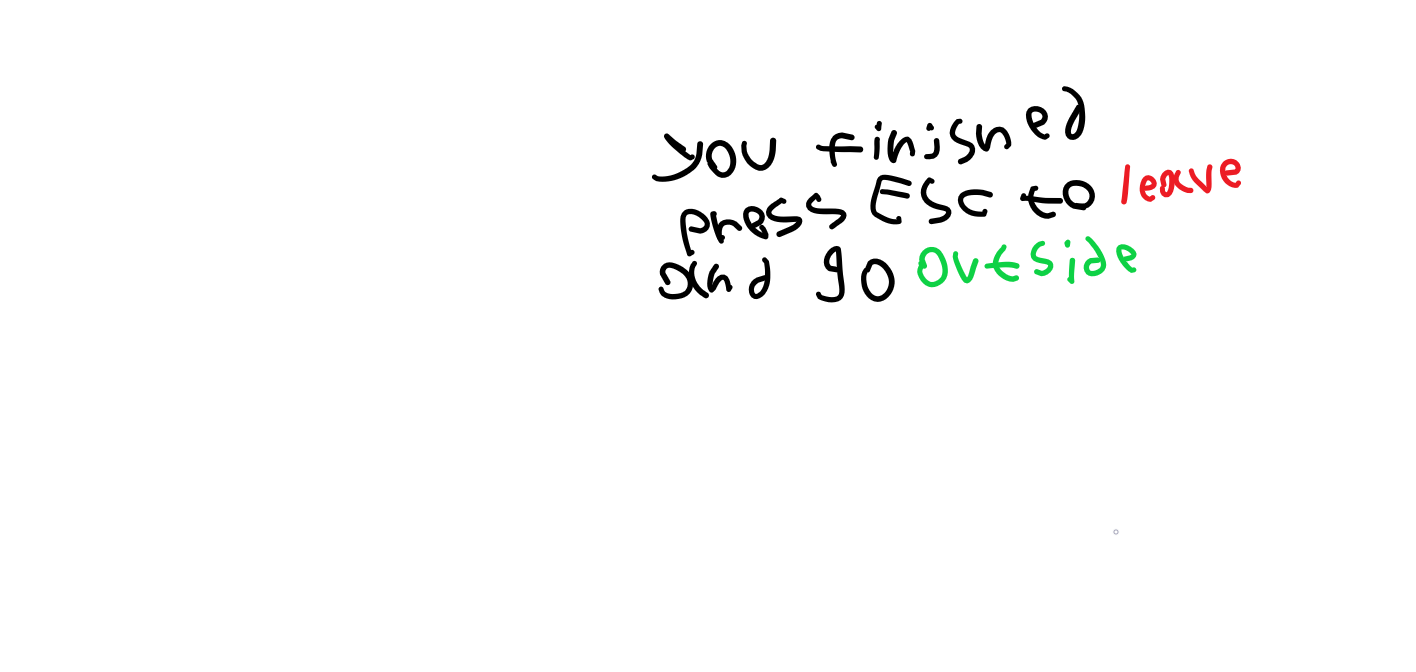 you finished
press ESC to leave
and go outside